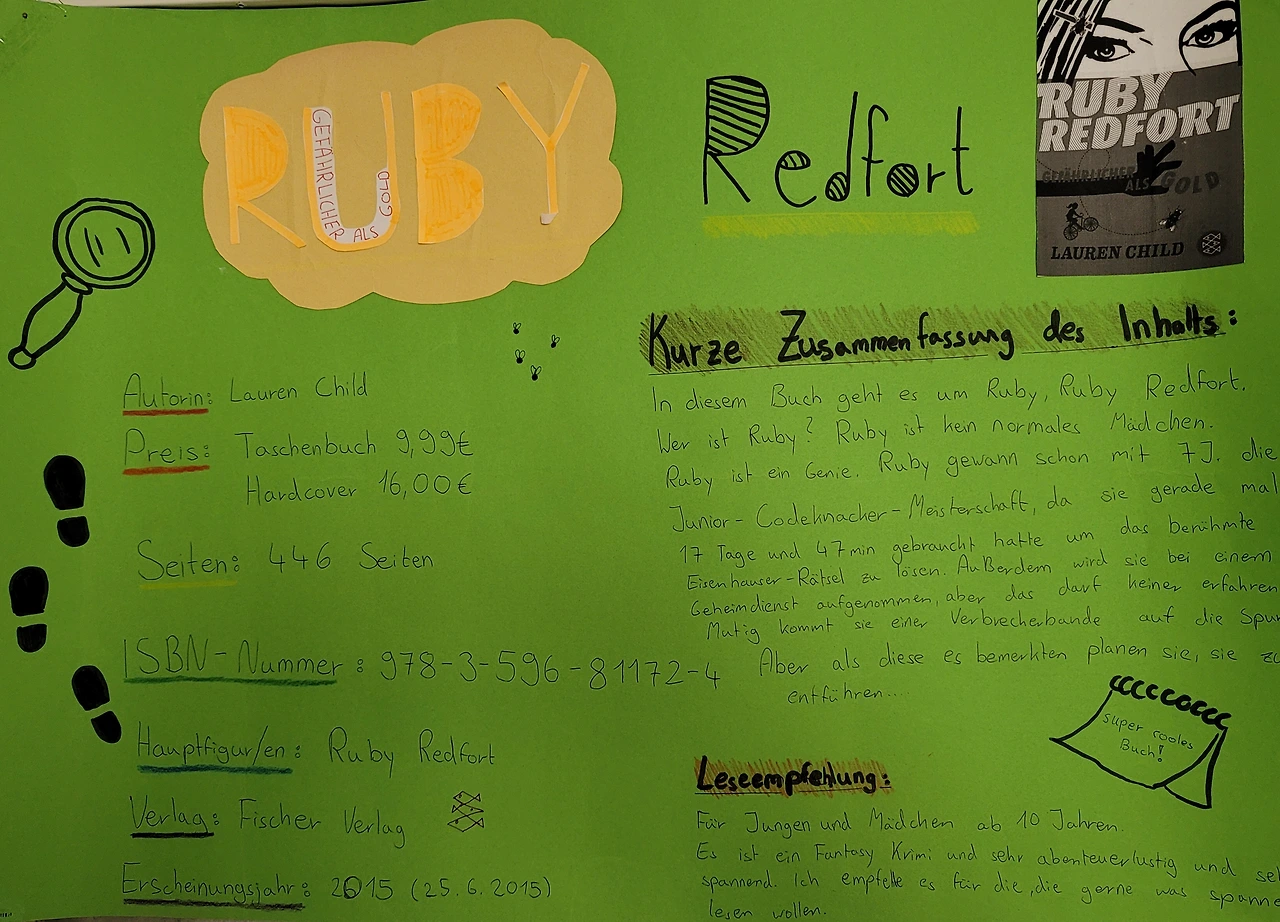 RUBY
GEFÄHRLICHER ALS GOLD
Redfort
RUBY
REDFORT
GEFÄHRLICHER
ALS GOLD
LAUREN CHILD
Autorin: Lauren Child
Preis: Taschenbuch 9,99€
Hardcover 16,00€
Seiten: 446 Seiten
ISBN-Nummer: 978-3-596-81172-4
Hauptfigur/en: Ruby Redfort
Verlag: Fischer Verlag
Erscheinungsjahr: 2015 (25.6.2015)
Kurze Zusammenfassung des Inhalts:
In diesem Buch geht es um Ruby, Ruby Redfort.
Wer ist Ruby? Ruby ist kein normales Mädchen.
Ruby ist ein Genie. Ruby gewann schon mit 7J. die
Junior-Codeknacker-Meisterschaft, da sie gerade mal
17 Tage und 47min gebraucht hatte um das berühmte
Eisenhauser-Rätsel zu lösen. Außerdem wird sie bei einem
Geheimdienst aufgenommen, aber das darf keiner erfahren
Mutig kommt sie einer Verbrecherbande auf die Spur
Aber als diese es bemerkten planen sie, sie zu
entführen...
super cooles
Buch!
Leseempfehlung:
Für Jungen und Mädchen ab 10 Jahren.
Es ist ein Fantasy Krimi und sehr abenteuerlustig und seh
spannend. Ich empfelle es für die, die gerne was spanne
lesen wollen.